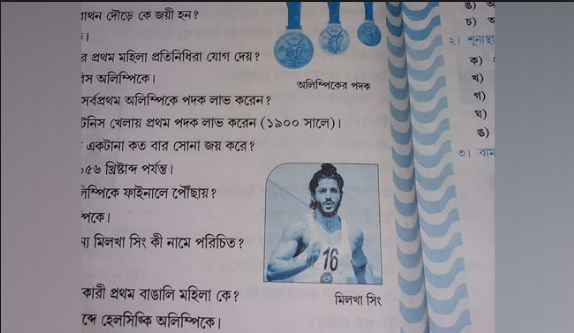 দৌড়ে কে জয়ী হন?
প্রথম মহিলা প্রতিনিধিরা যোগ দেয়?
অলিম্পিকে।
অলিম্পিকের পদক
সর্বপ্রথম অলিম্পিকে পদক লাভ করেন?
টেনিস খেলায় প্রথম পদক লাভ করেন (১৯০০ সালে)।
একটানা কত বার সোনা জয় করে?
খ্রিষ্টাব্দ পর্যন্ত।
ফাইনালে পৌঁছায়?
মিলখা সিং কী নামে পরিচিত?
16
প্রথম বাঙালি মহিলা কে?
মিলখা সিং
হেলসিঙ্কি অলিম্পিকে।
ঙ)
চ)
২।
ক)
খ)
গ)
ঘ)
ঙ)
৩।